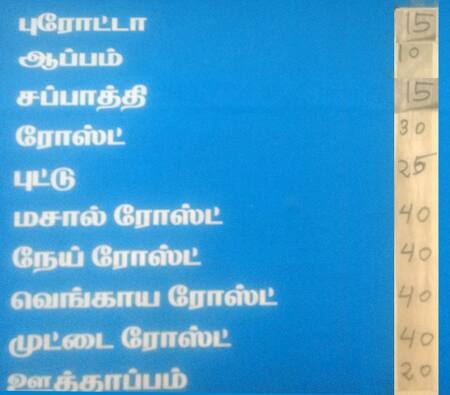 புரோட்டா 15
ஆப்பம் 10
சப்பாத்தி 15
ரோஸ்ட் 30
புட்டு 25
மசால் ரோஸ்ட் 40
நேய் ரோஸ்ட் 40
வெங்காய ரோஸ்ட் 40
முட்டை ரோஸ்ட் 40
ஊத்தாப்பம் 20